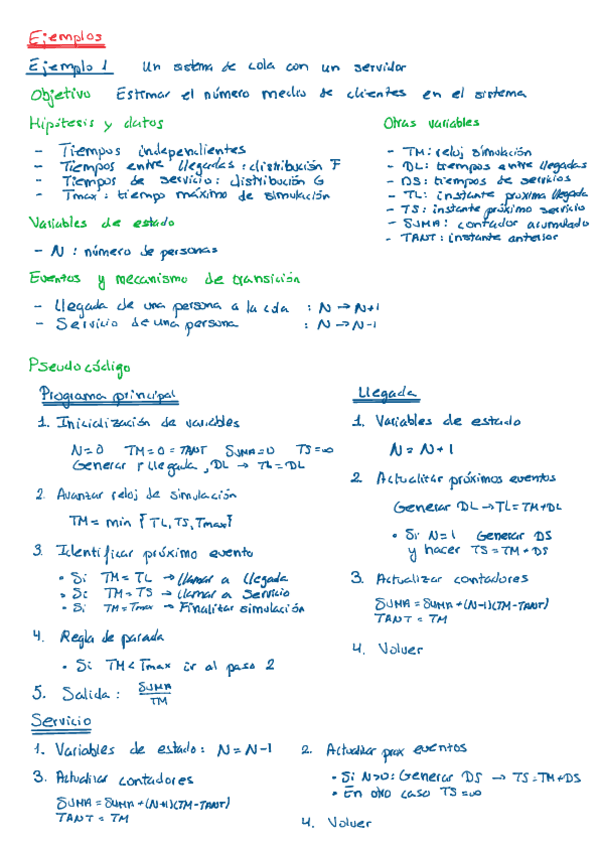 Ejemplos
Ejemplo 1 Un sistema de cola con un servidor
Objetivo Estimar el número medio de clientes en el sistema
Hipótesis y datos
- Tiempos independientes
- Tiempos entre llegadas : distribución F
- Tiempos de servicio : distribución G
- Tmax : tiempo máximo de simulación
Otras variables
- TM : reloj simulación
- DL : tiempos entre llegadas
- DS : tiempos de servicios
- TL : instante proxima llegada
- TS : instante próximo servicio
- SUMA : contador acumulado
- TANT : instante anterior
Variables de estado
- N : número de personas
Eventos y mecanismo de transición
- Llegada de una persona a la cola : N → N+1
- Servicio de una persona : N → N-1
Pseudocódigo
Programa principal
1. Inicialización de variables
N=0 TM=0=TANT SUMA=0 TS=∞
Generar 1ª llegada, DL → TL=DL
2. Avanzar reloj de simulación
TM = min {TL, TS, Tmax}
3. Identificar próximo evento
• Si TM = TL → llamar a llegada
• Si TM = TS → llamar a Servicio
• Si TM = Tmax → Finalizar simulación
4. Regla de parada
• Si TM < Tmax ir al paso 2
5. Salida : SUMA / TM
Llegada
1. Variables de estado
N = N+1
2. Actualizar próximos eventos
Generar DL → TL=TM+DL
• Si N=1 Generar DS
y hacer TS=TM+DS
3. Actualizar contadores
SUMA = SUMA + (N-1)(TM-TANT)
TANT = TM
4. Volver
Servicio
1. Variables de estado : N = N-1
2. Actualizar prox eventos
• Si N>0: Generar DS → TS=TM+DS
• En otro caso TS=∞
3. Actualizar contadores
SUMA = SUMA + (N+1)(TM-TANT)
TANT = TM
4. Volver